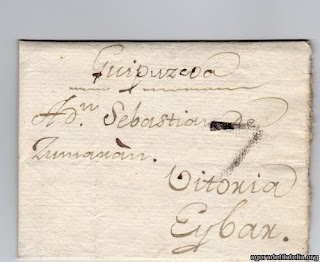 Guipuzcoa
A dn. Sebastian de
Zumaran.
7
Vitoria
Eybar.
agoradefilatelia.org